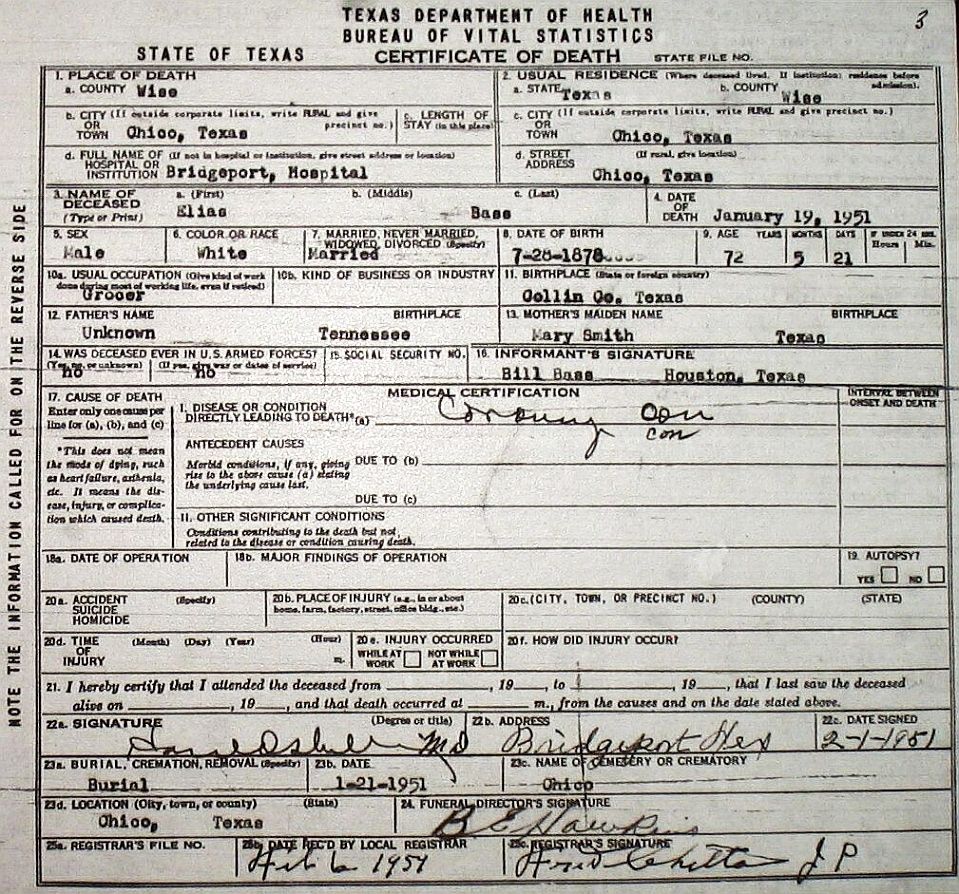 TEXAS DEPARTMENT OF HEALTH
BUREAU OF VITAL STATISTICS
3
STATE OF TEXAS CERTIFICATE OF DEATH STATE FILE NO.
1. PLACE OF DEATH
a. COUNTY Wise
2. USUAL RESIDENCE (Where deceased lived. If institution: residence before admission).
a. STATE Texas b. COUNTY Wise
b. CITY (If outside corporate limits, write RURAL and give precinct no.)
OR
TOWN Chico, Texas
c. LENGTH OF
STAY (in this place)
c. CITY (If outside corporate limits, write RURAL and give precinct no.)
OR
TOWN Chico, Texas
d. FULL NAME OF (If not in hospital or institution, give street address or location)
HOSPITAL OR
INSTITUTION Bridgeport, Hospital
d. STREET (If rural, give location)
ADDRESS
Chico, Texas
3. NAME OF DECEASED (Type or Print)
a. (First) b. (Middle) c. (Last)
Elias Bass
4. DATE OF DEATH January 19, 1951
5. SEX
Male
6. COLOR OR RACE
White
7. MARRIED, NEVER MARRIED,
WIDOWED, DIVORCED (Specify)
Married
8. DATE OF BIRTH
7-28-1878
9. AGE YEARS MONTHS DAYS IF UNDER 24 HRS.
Hours Min.
72 5 21
10a. USUAL OCCUPATION (Give kind of work
done during most of working life, even if retired)
Grocer
10b. KIND OF BUSINESS OR INDUSTRY
11. BIRTHPLACE (State or foreign country)
Collin Co. Texas
12. FATHER'S NAME BIRTHPLACE
Unknown Tennessee
13. MOTHER'S MAIDEN NAME BIRTHPLACE
Mary Smith Texas
14. WAS DECEASED EVER IN U.S. ARMED FORCES?
(Yes, no, or unknown) (If yes, give war or dates of service)
no no
15. SOCIAL SECURITY NO.
16. INFORMANT'S SIGNATURE
Bill Bass Houston, Texas
17. CAUSE OF DEATH
Enter only one cause per
line for (a), (b), and (c)
*This does not mean
the mode of dying, such
as heart failure, asthenia,
etc. It means the dis-
ease, injury, or complica-
tion which caused death.
MEDICAL CERTIFICATION
INTERVAL BETWEEN
ONSET AND DEATH
I. DISEASE OR CONDITION
DIRECTLY LEADING TO DEATH* (a)
ANTECEDENT CAUSES
Morbid conditions, if any, giving
rise to the above cause (a) stating
the underlying cause last.
DUE TO (b)
DUE TO (c)
II. OTHER SIGNIFICANT CONDITIONS
Conditions contributing to the death but not
related to the disease or condition causing death.
18a. DATE OF OPERATION
18b. MAJOR FINDINGS OF OPERATION
19. AUTOPSY?
YES NO
20a. ACCIDENT (Specify)
SUICIDE
HOMICIDE
20b. PLACE OF INJURY (e.g., in or about
home, farm, factory, street, office bldg., etc.)
20c. (CITY, TOWN, OR PRECINCT NO.) (COUNTY) (STATE)
20d. TIME (Month) (Day) (Year) (Hour)
OF
INJURY m.
20e. INJURY OCCURRED
WHILE AT WORK NOT WHILE AT WORK
20f. HOW DID INJURY OCCUR?
21. I hereby certify that I attended the deceased from , 19 , to , 19 , that I last saw the deceased
alive on , 19 , and that death occurred at m., from the causes and on the date stated above.
22a. SIGNATURE (Degree or title)
MD
22b. ADDRESS
Bridgeport Tex
22c. DATE SIGNED
2-1-1951
23a. BURIAL, CREMATION, REMOVAL (Specify)
Burial
23b. DATE
1-21-1951
23c. NAME OF CEMETERY OR CREMATORY
Chico
23d. LOCATION (City, town, or county) (State)
Chico, Texas
24. FUNERAL DIRECTOR'S SIGNATURE
B E Hawkins
25a. REGISTRAR'S FILE NO.
25b. DATE REC'D BY LOCAL REGISTRAR
Feb 6 1951
25c. REGISTRAR'S SIGNATURE
J P
NOTE THE INFORMATION CALLED FOR ON THE REVERSE SIDE